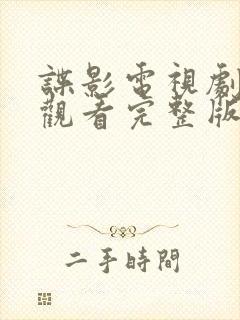 諜影電視劇
觀看完整版
二手時間